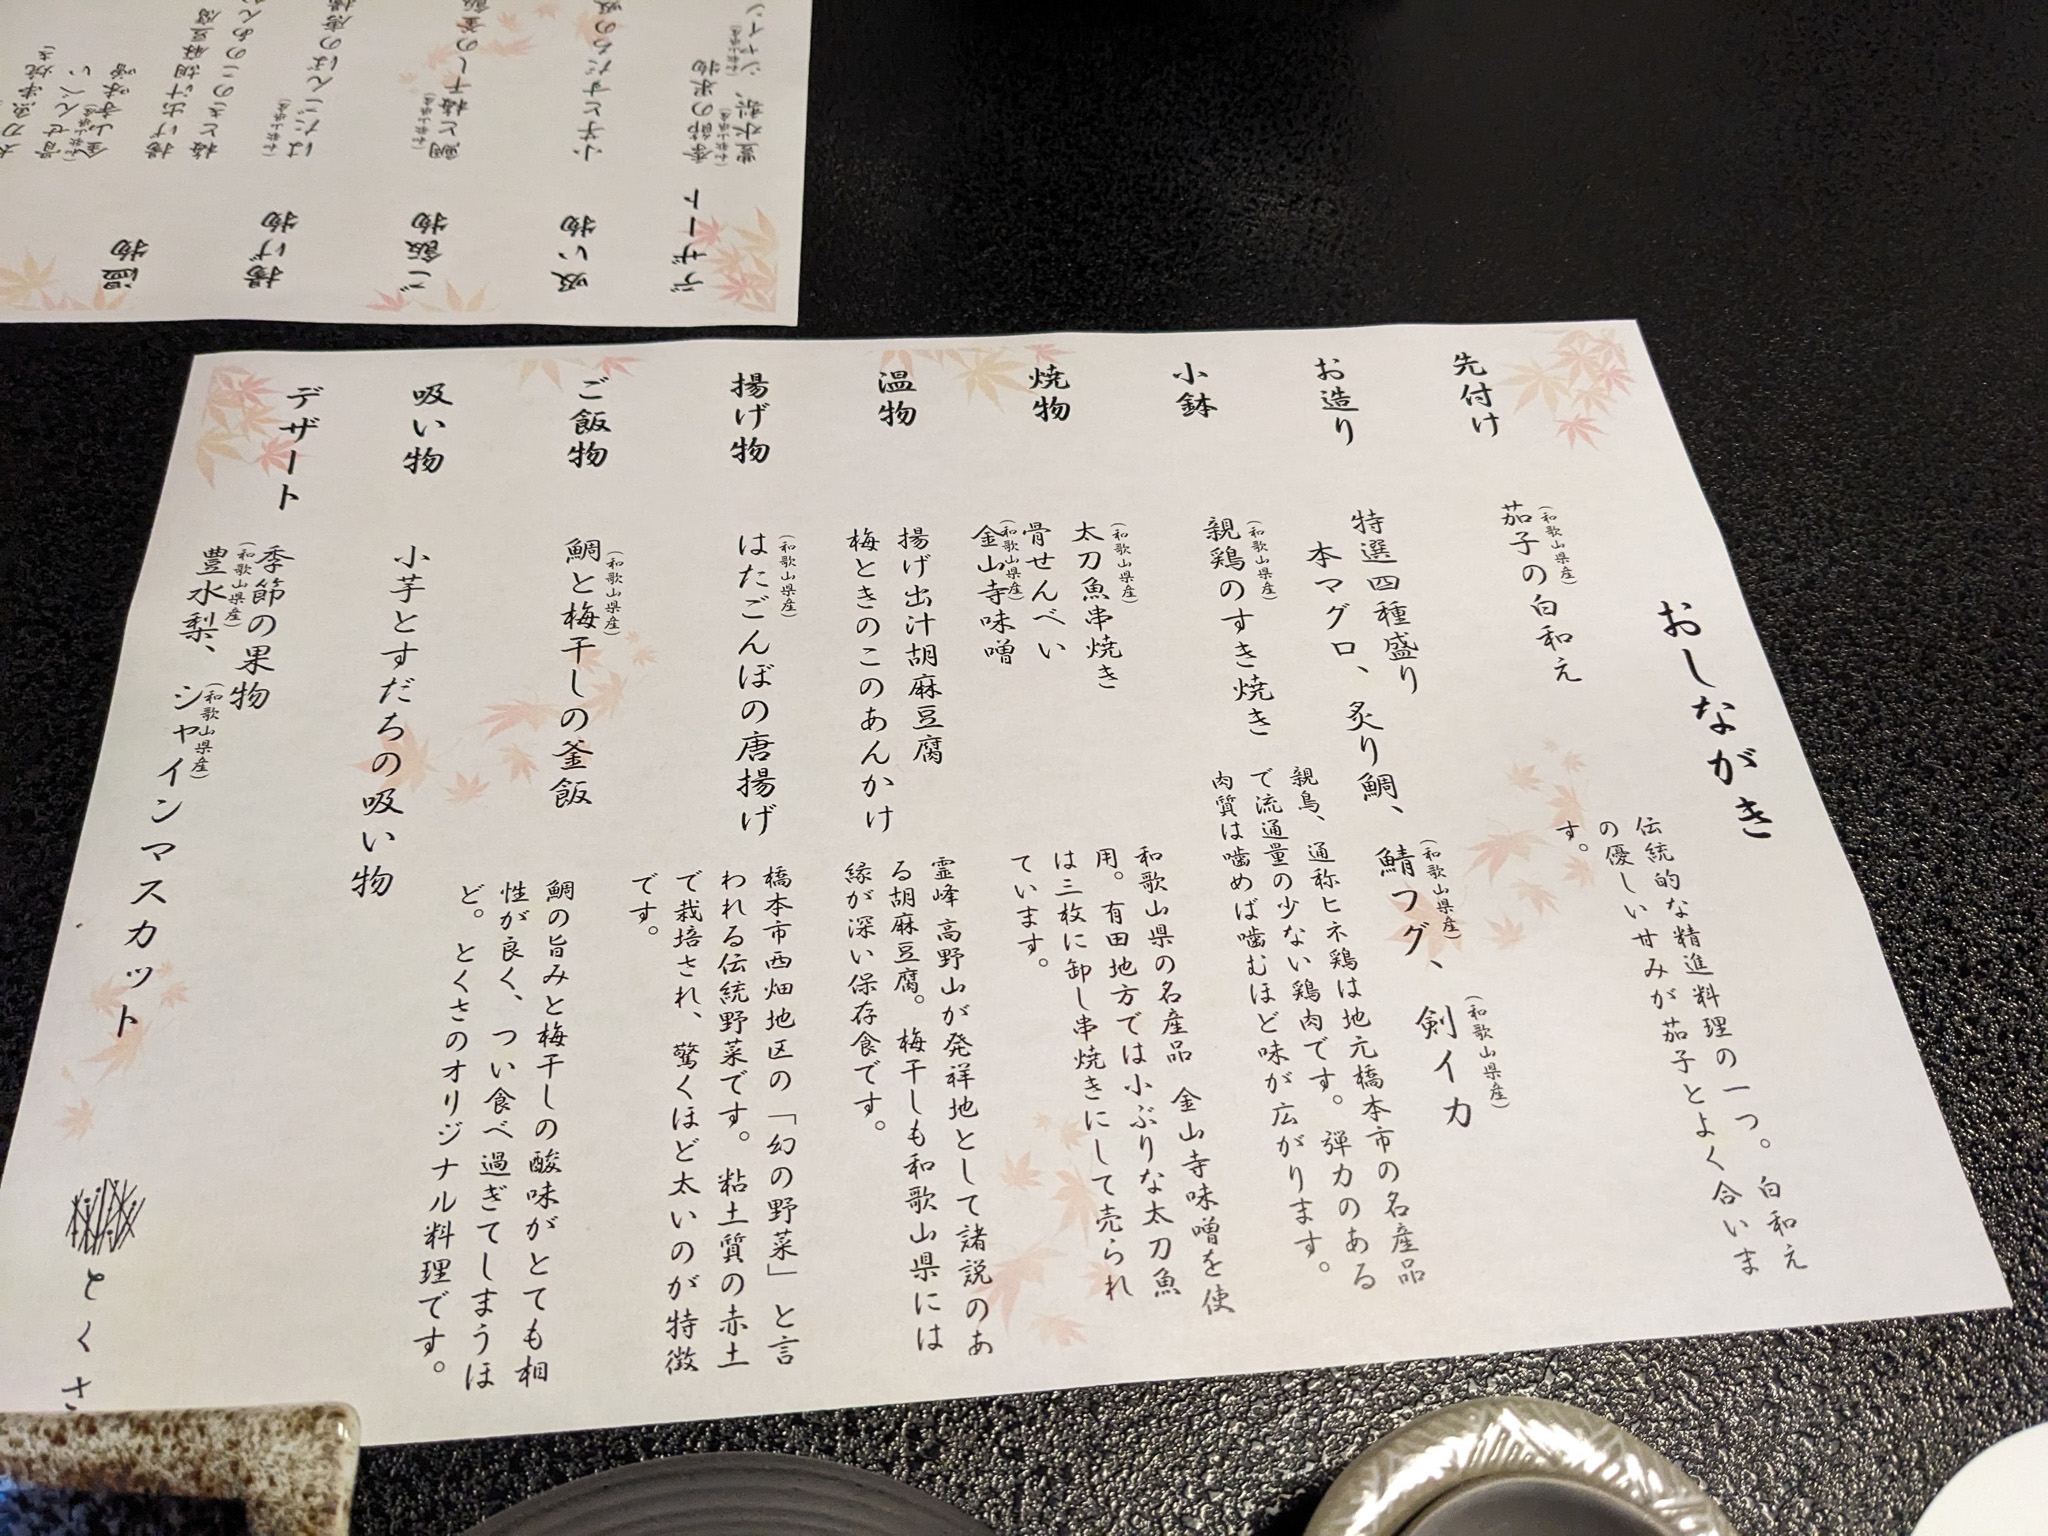 おしながき
先付け
(和歌山県産)
茄子の白和え
伝統的な精進料理の一つ。白和え
の優しい甘みが茄子とよく合いま
す。
お造り
特選四種盛り
本マグロ、炙り鯛、鯖フグ、剣イカ
(和歌山県産)
(和歌山県産)
小鉢
(和歌山県産)
親鶏のすき焼き
親鳥、通称ヒネ鶏は地元橋本市の名産品
で流通量の少ない鶏肉です。弾力のある
肉質は噛めば噛むほど味が広がります。
焼物
(和歌山県産)
太刀魚串焼き
骨せんべい
(和歌山県産)
金山寺味噌
和歌山県の名産品 金山寺味噌を使
用。有田地方では小ぶりな太刀魚
は三枚に卸し串焼きにして売られ
ています。
温物
揚げ出汁胡麻豆腐
梅ときのこのあんかけ
霊峰 高野山が発祥地として諸説のあ
る胡麻豆腐。梅干しも和歌山県には
縁が深い保存食です。
揚げ物
(和歌山県産)
はたごんぼの唐揚げ
橋本市西畑地区の「幻の野菜」と言
われる伝統野菜です。粘土質の赤土
で栽培され、驚くほど太いのが特徴
です。
ご飯物
(和歌山県産)
鯛と梅干しの釜飯
鯛の旨みと梅干しの酸味がとても相
性が良く、つい食べ過ぎてしまうほ
ど。とくさのオリジナル料理です。
吸い物
小芋とすだちの吸い物
デザート
季節の果物
(和歌山県産)
(和歌山県産)
豊水梨、シャインマスカット
とくさ
串焼き
骨せんべい
(和歌山県産)
金山寺味噌
温物
揚げ出汁胡麻豆腐
梅ときのこのあん
揚げ物
(和歌山県産)
はたごんぼの唐揚
ご飯物
(和歌山県産)
鯛と梅干しの釜飯
吸い物
小芋とすだちの吸
デザート
季節の果物
(和歌山県産)
(和歌山県産)
豊水梨、シャイン